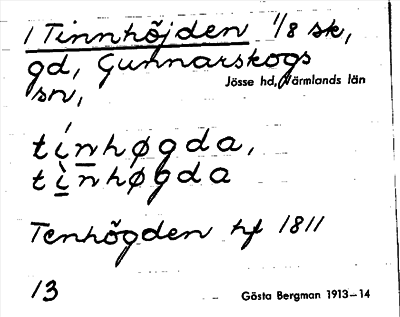 1 Tinnhöjden 1/8 sk,
gd, Gunnarskogs
sn, Jösse hd, Värmlands län
tínhøgda,
tìnhøgda
Tenhögden hf 1811
13
Gösta Bergman 1913–14